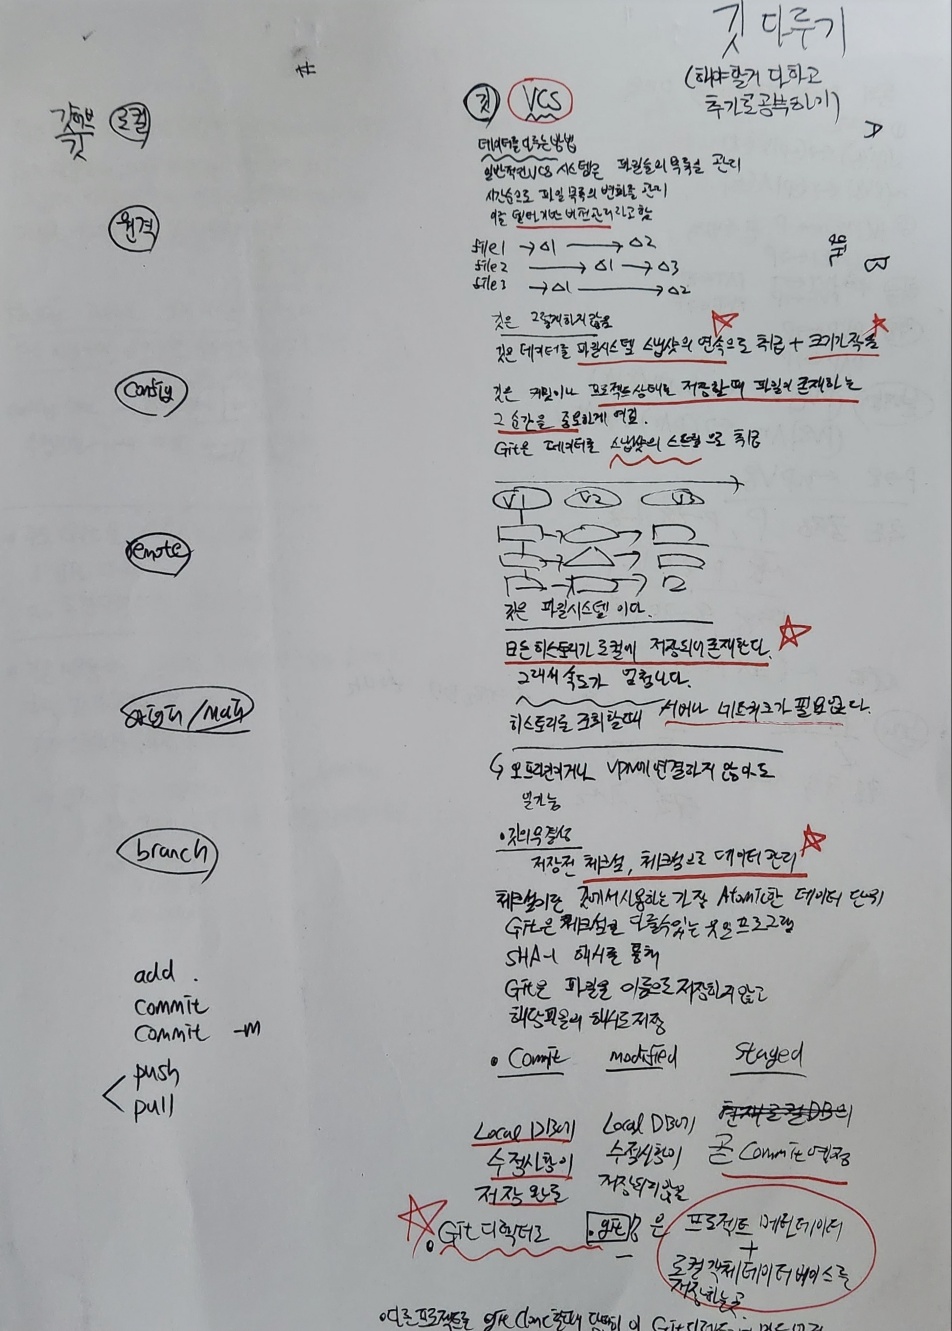 깃 다루기
(해야할거 다하고
추가로 공부하기)
깃허브
깃
로컬
원격
Config
remote
branch
add .
commit
commit -m
push
pull
깃 VCS
데이터를 다루는 방법
일반적인 VCS 시스템은 파일들의 목록을 관리
시간순으로 파일 목록의 변화를 관리
이를 델타기반 버전관리라고 함
file1 → Δ1 → Δ2
file2 → Δ1 → Δ3
file3 → Δ1 → Δ2
깃은 그렇게하지 않음
깃은 데이터를 파일시스템 스냅샷의 연속으로 취급 + 크기가 작음
깃은 커밋이나 프로젝트 상태를 저장할때 파일이 존재하는
그 순간을 중요하게 여김.
Git은 데이터를 스냅샷의 스트림으로 취급
V1 V2 V3
깃은 파일시스템 이다.
모든 히스토리가 로컬에 저장되어 존재한다.
그래서 속도가 엄청나다.
히스토리를 조회할때 서버나 네트워크가 필요없다.
오프라인이거나 VPN에 연결하지 않아도
일가능
• 깃의 무결성
저장전 체크섬, 체크섬으로 데이터 관리
체크섬이란 깃에서 사용하는 가장 Atomic한 데이터 단위
Git은 체크섬을 다룰수있는 프로그램
SHA-1 해시를 통해
Git은 파일을 이름으로 저장하지 않고
해당파일의 해시로 저장
• Commit modified Staged
Local DB에 수정사항이 저장 완료
Local DB에 수정사항이 저장되지 않음
곧 Commit 예정
• Git 디렉터리 .git 은 프로젝트 메타데이터
+
로컬 객체 데이터 베이스를
저장하는곳